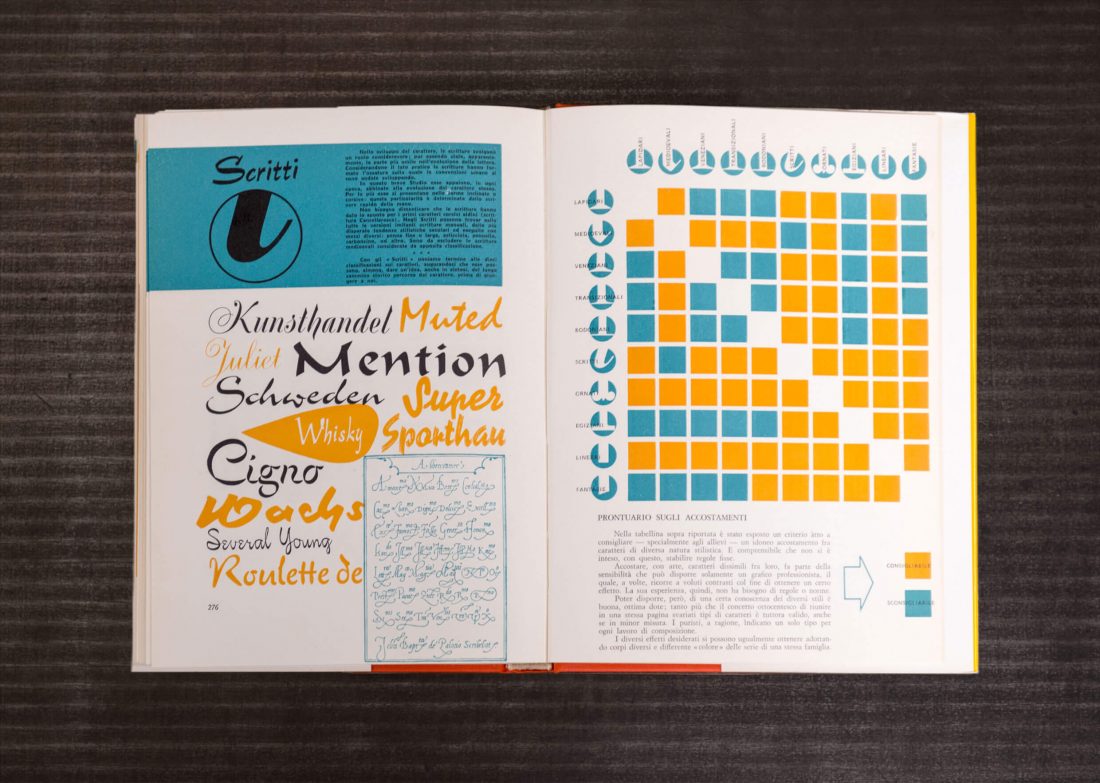 Scritti
Nello sviluppo del carattere, le scritture svolgono
un ruolo considerevole; pur essendo state, apparente-
mente, la parte più umile nell'evoluzione della lettera.
In questo breve Studio esse appaiono, in ogni
epoca, abbinate alla evoluzione del carattere stesso.
Per lo più esse si presentano nelle forme inclinate o
corsive: questa particolarità è determinata dallo scri-
vere rapido della mano.
Non bisogna dimenticare che le scritture hanno
dato lo spunto per i primi caratteri corsivi aldini (scrit-
tura Cancelleresca). Negli Scritti possono trovar sede
tutte le versioni imitanti scritture manuali, dalle più
disparate tendenze stilistiche secolari ed eseguite con
mezzi diversi: penna fine o larga, asticciola, pennello,
carboncino, od altro. Sono da escludere le scritture
medioevali considerate da apposita classificazione.
* * *
Con gli « Scritti » poniamo termine alle dieci
classificazioni sui caratteri, augurandoci che esse pos-
sano, almeno, dare un'idea, anche in sintesi, del lungo
cammino storico percorso dal carattere, prima di giun-
gere a noi.
Kunsthandel Muted
Juliet Mention
Schweden Super
Whisky Sporthau
Cigno
Wachs
Several Young
Roulette de
276
LAPIDARI
MEDIOEVALI
VENEZIANI
TRANSIZIONALI
BODONIANI
SCRITTI
ORNATI
EGIZIANI
LINEARI
FANTASIE
LAPIDARI
MEDIOEVALI
VENEZIANI
TRANSIZIONALI
BODONIANI
SCRITTI
ORNATI
EGIZIANI
LINEARI
FANTASIE
PRONTUARIO SUGLI ACCOSTAMENTI
Nella tabellina sopra riportata è stato esposto un criterio atto a
consigliare — specialmente agli allievi — un idoneo accostamento fra
caratteri di diversa natura stilistica. È comprensibile che non si è
inteso, con questo, stabilire regole fisse.
Accostare, con arte, caratteri dissimili fra loro, fa parte della
sensibilità che può disporre solamente un grafico professionista, il
quale, a volte, ricorre a voluti contrasti col fine di ottenere un certo
effetto. La sua esperienza, quindi, non ha bisogno di regole o norme.
Poter disporre, però, di una certa conoscenza dei diversi stili è
buona, ottima dote; tanto più che il concetto ottocentesco di riunire
in una stessa pagina svariati tipi di caratteri è tuttora valido, anche
se in minor misura. I puristi, a ragione, indicano un solo tipo per
ogni lavoro di composizione.
I diversi effetti desiderati si possono ugualmente ottenere adottan-
do corpi diversi e differente «colore» delle serie di una stessa famiglia
CONSIGLIABILE
SCONSIGLIABILE